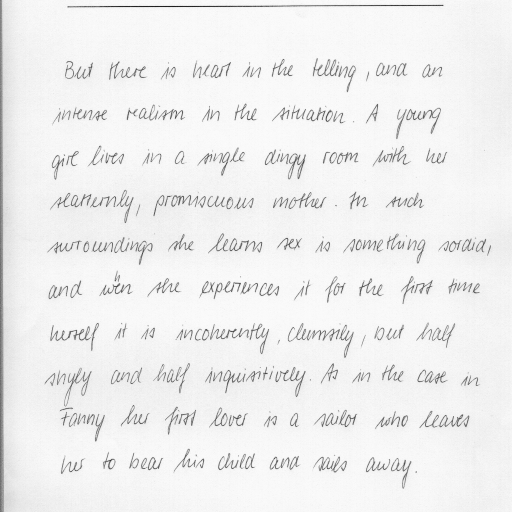 But there is heart in the telling, and an
intense realism in the situation. A young
girl lives in a single dingy room with her
slatternly, promiscuous mother. In such
surroundings she learns sex is something sordid,
and wën she experiences it for the first time
herself it is incoherently, clumsily, but half
shyly and half inquisitively. As in the case in
Fanny her first lover is a sailor who leaves
her to bear his child and sails away.